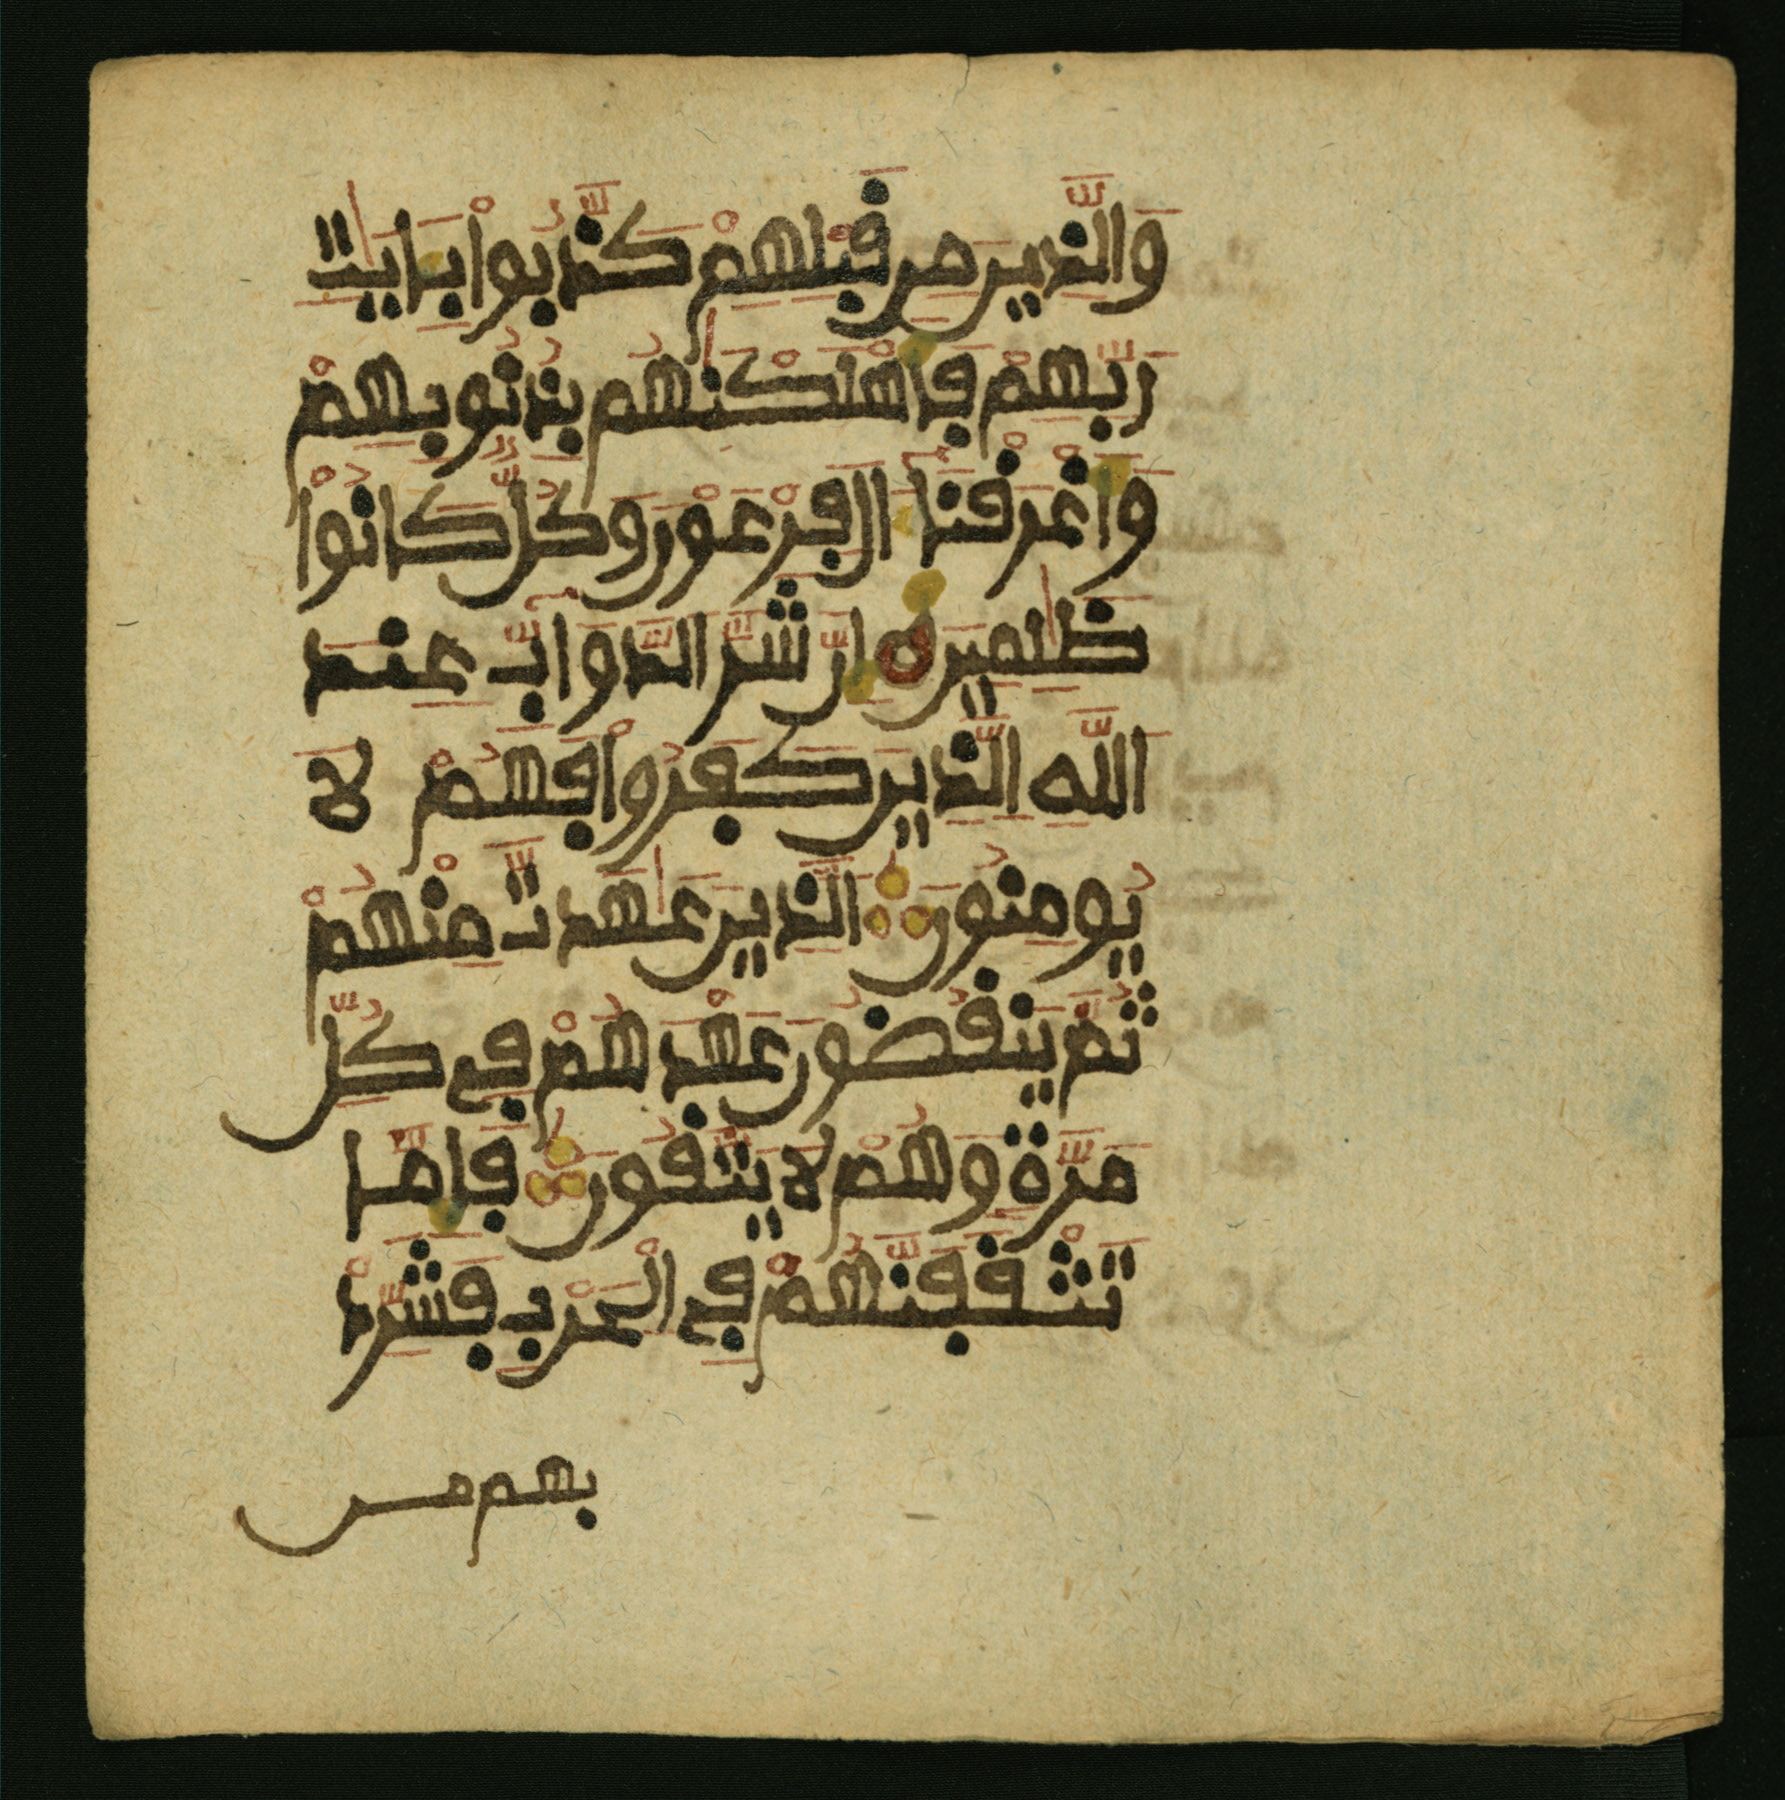 وَالَّذِينَ مِن قَبْلِهِمْ كَذَّبُواْ بِـَٔايَٰتِ
رَبِّهِمْ فَأَهْلَكْنَٰهُم بِذُنُوبِهِمْ
وَأَغْرَقْنَآ ءَالَ فِرْعَوْنَ وَكُلٌّ كَانُواْ
ظَٰلِمِينَ إِنَّ شَرَّ الدَّوَآبِّ عِندَ
اللَّهِ الَّذِينَ كَفَرُواْ فَهُمْ لَا
يُومِنُونَ الَّذِينَ عَٰهَدتَّ مِنْهُمْ
ثُمَّ يَنقُضُونَ عَهْدَهُمْ فِي كُلِّ
مَرَّةٍ وَهُمْ لَا يَتَّقُونَ فَإِمَّا
تَثْقَفَنَّهُمْ فِي الْحَرْبِ فَشَرِّدْ
بهم من